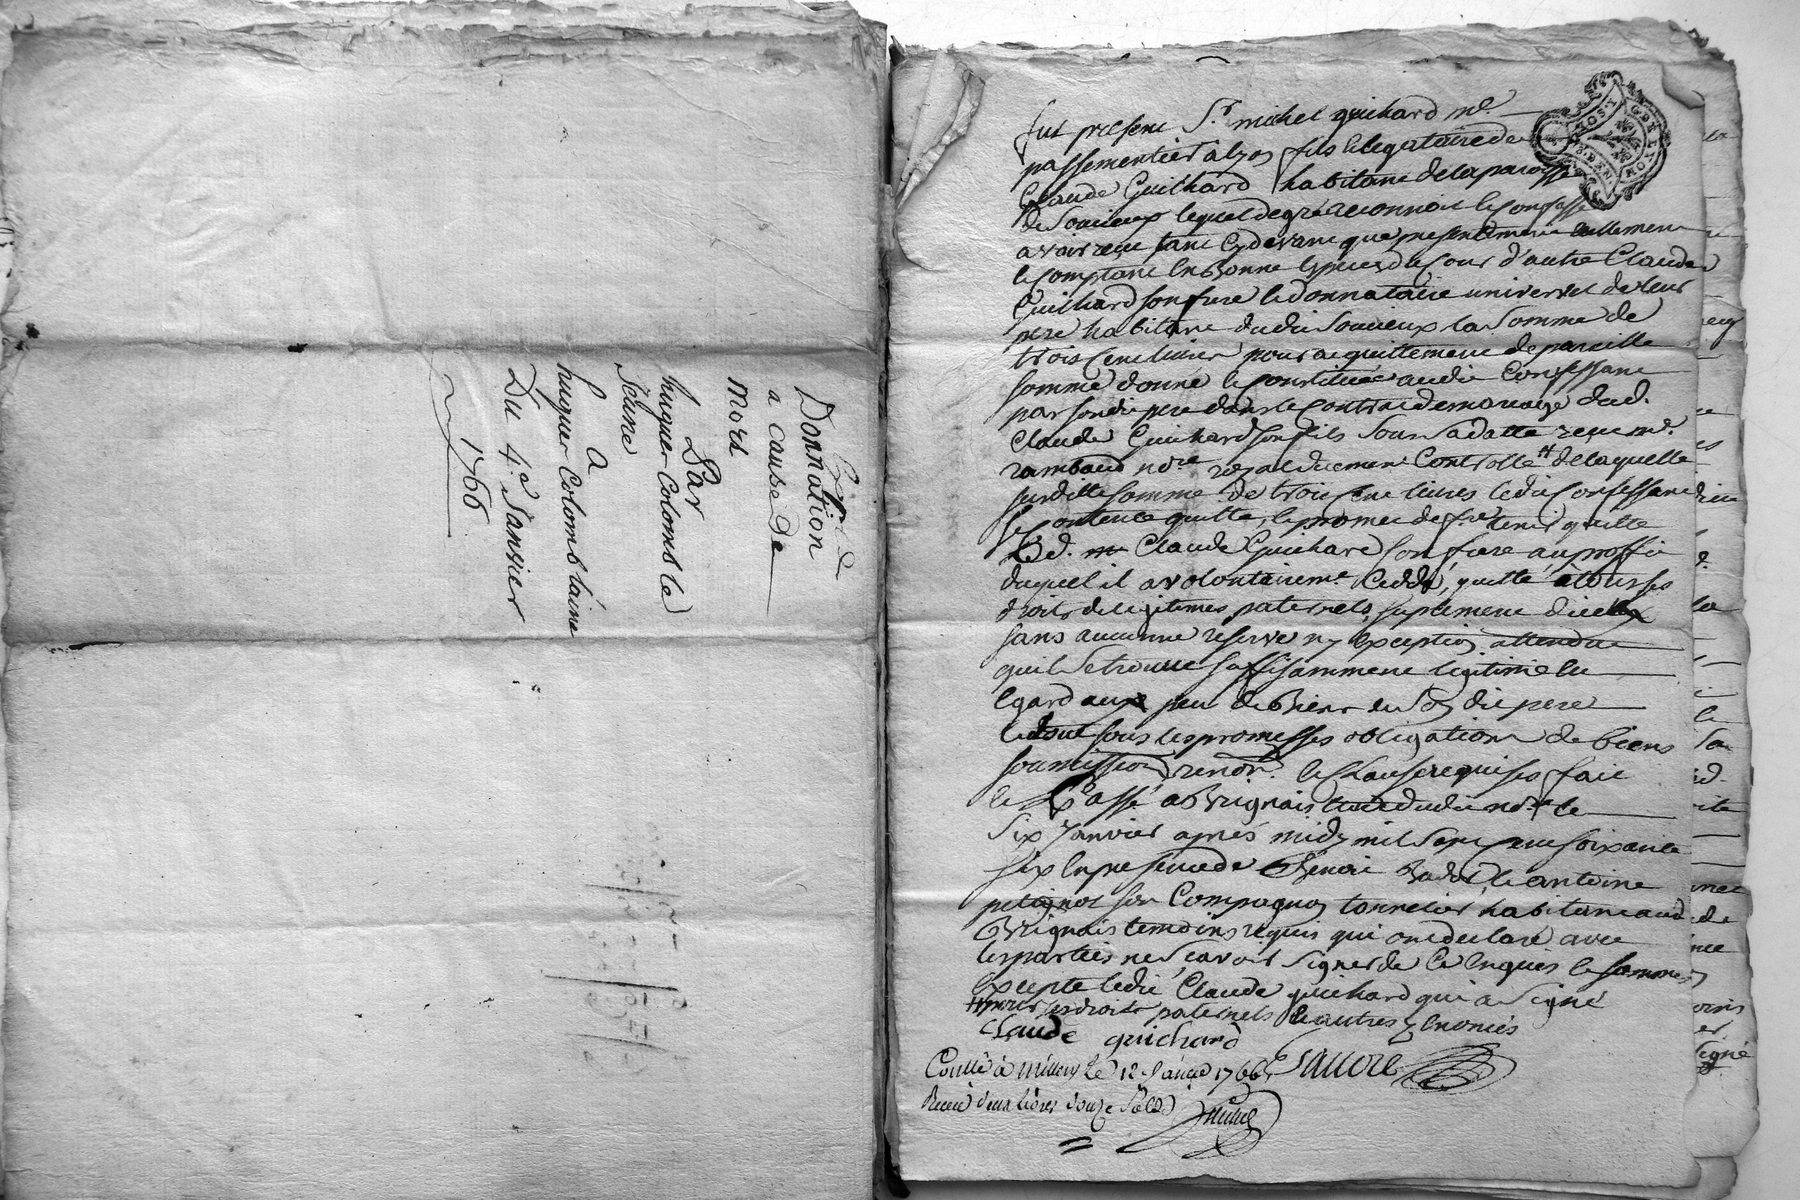 Donnation
a cause de
mort
Par
hugue Colomb le
Jeune
a
hugue Colomb laine
Du 4.e Janvier
1766
fut present S.r michel guichard m.e
passementier a lyon fils & legataire de
Claude Guichard habitant de la paroisse
de Soucieux lequel de gré a reconnoit & confesse
avoir receu tant cydevant que presentement reellement
& comptant en bonne especes du cour d'autre Claude
Guichard son frere & donnataire universel de leur
pere habitant dudit Soucieux la Somme de
trois cent livres pour acquittement de pareille
somme donné & constituée audit Confessant
par son dit pere dans le Contrat de mariage dud.
Claude Guichard son fils sous sa datte receu m.e
rambaud no.re royal duement Controllé # de laquelle
susditte somme de trois cent livres ledit Confessant
se contente quitte, & promet de f.re tenir quitte
led. Claude Guichard son frere au proffit
duquel il a volontairem.t Ceddé, quitté tous ses
droits de legitimes paternels, suplement d'iceux
sans aucunne reserve ny exception attendu
quil se trouve suffisamment legitimé eu
egard aux peu de biens du son dit pere
le tout sous les promesses obligation de biens
soumission renon.n & clause requises fait
& Passé a Brignais etude dudit no.re le
six Janvier après midy mil sept cent soixante
six en presence de Benoit Badoil & antoine
petignot son Compagnon tonnelier habitant aud
Brignais temoins requis qui ont declaré avec
les parties ne scavoir signer de ce enquis & sommés
excepté ledit Claude guichard qui a signé
# pour ses droits paternels & autres y enoncés
Claude guichard
Conllé à millery le 12 Janvier 1766
Receu deux livres douze sols